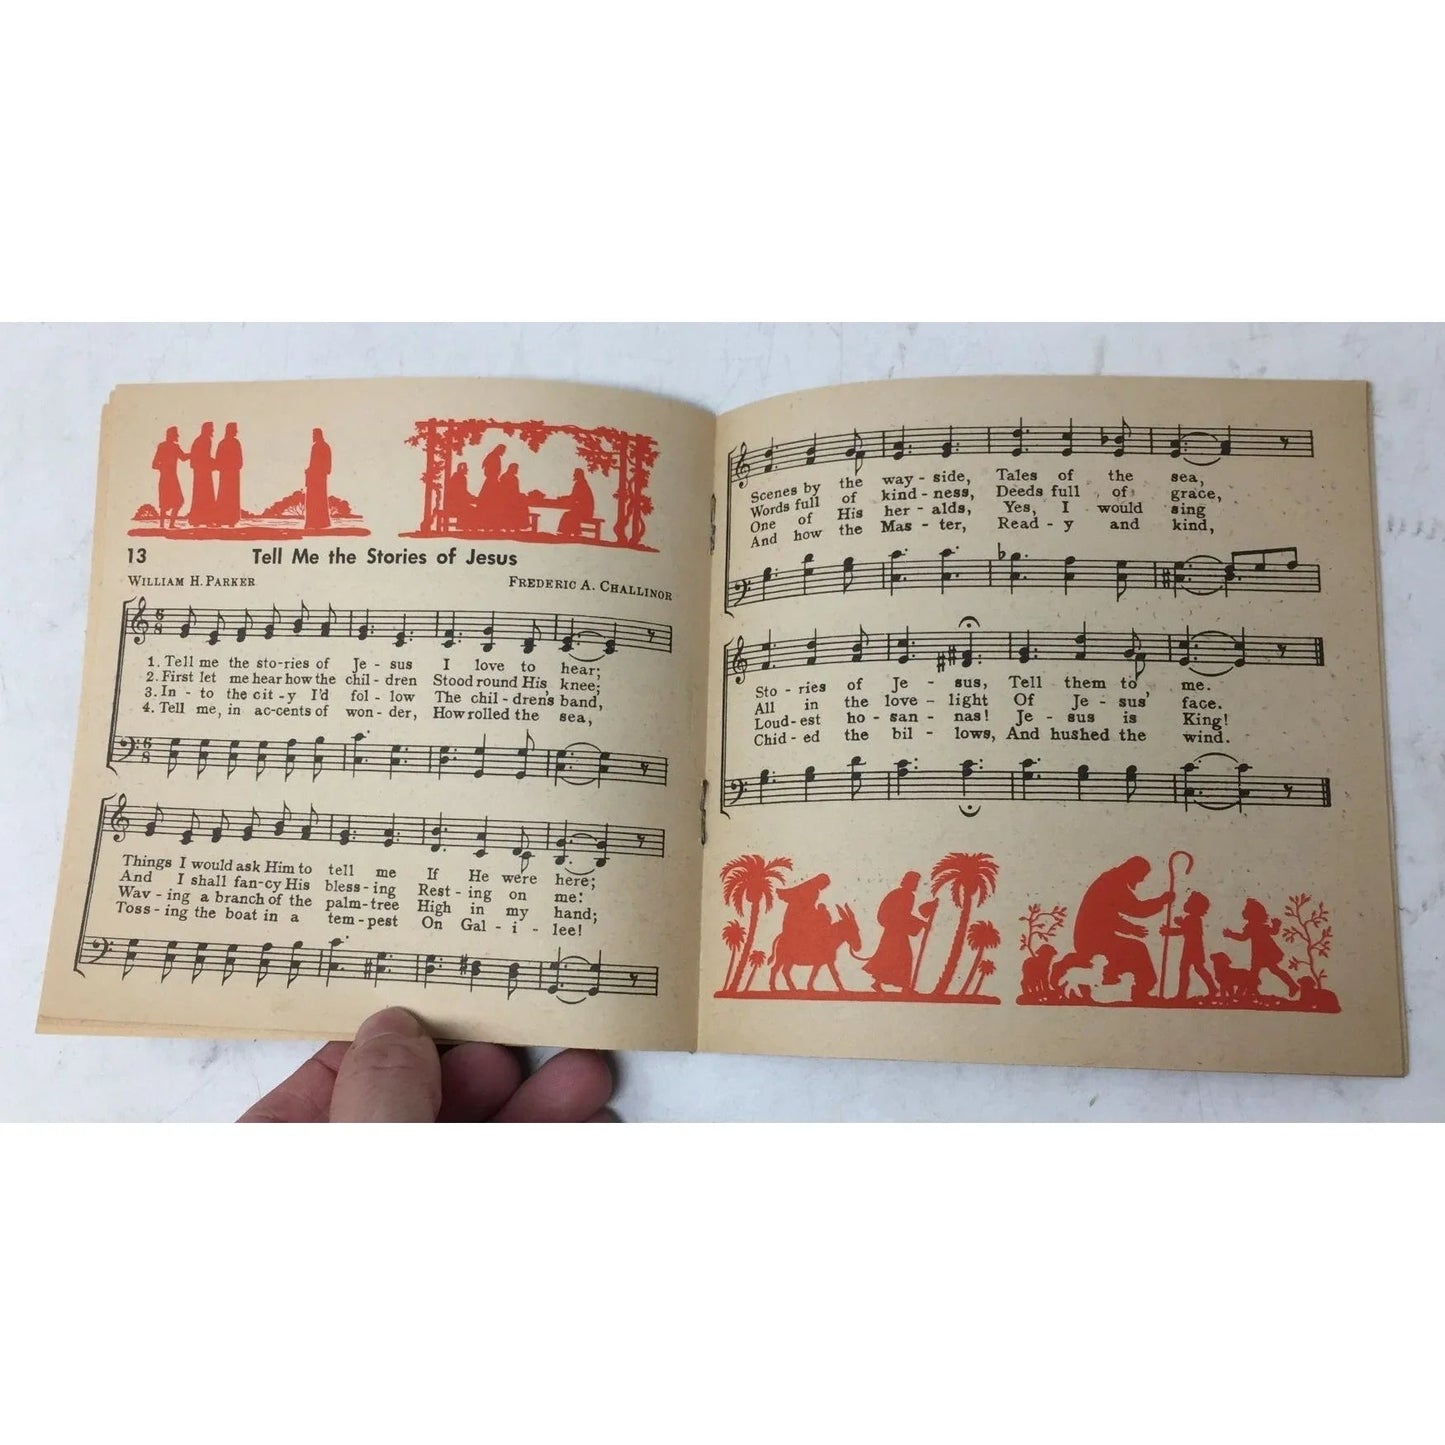 13 Tell Me the Stories of Jesus
WILLIAM H. PARKER FREDERIC A. CHALLINOR
1. Tell me the sto-ries of Je - sus I love to hear;
2. First let me hear how the chil - dren Stood round His knee;
3. In - to the cit - y I'd fol - low The chil - dren's band,
4. Tell me, in ac-cents of won - der, How rolled the sea,
Things I would ask Him to tell me If He were here;
And I shall fan-cy His bless - ing Rest - ing on me:
Wav - ing a branch of the palm-tree High in my hand;
Toss - ing the boat in a tem - pest On Gal - i - lee!
Scenes by the way - side, Tales of the sea,
Words full of kind - ness, Deeds full of grace,
One of His her - alds, Yes, I would sing
And how the Mas - ter, Read - y and kind,
Sto - ries of Je - sus, Tell them to me.
All in the love - light Of Je - sus' face.
Loud-est ho - san - nas! Je - sus is King!
Chid - ed the bil - lows, And hushed the wind.